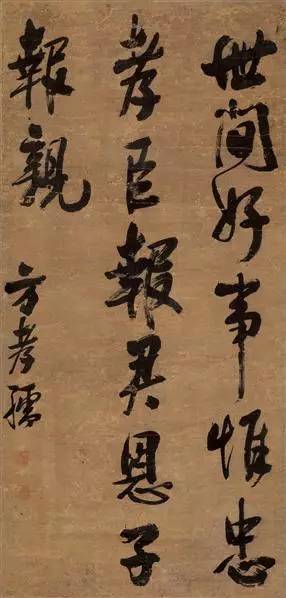 世間好事惟忠
孝臣報君恩子
報親
方孝孺